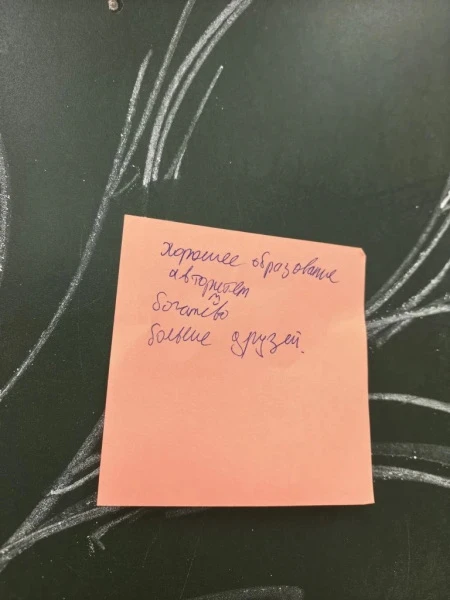 хорошее образование
авторитет
богатсво
больше друзей.